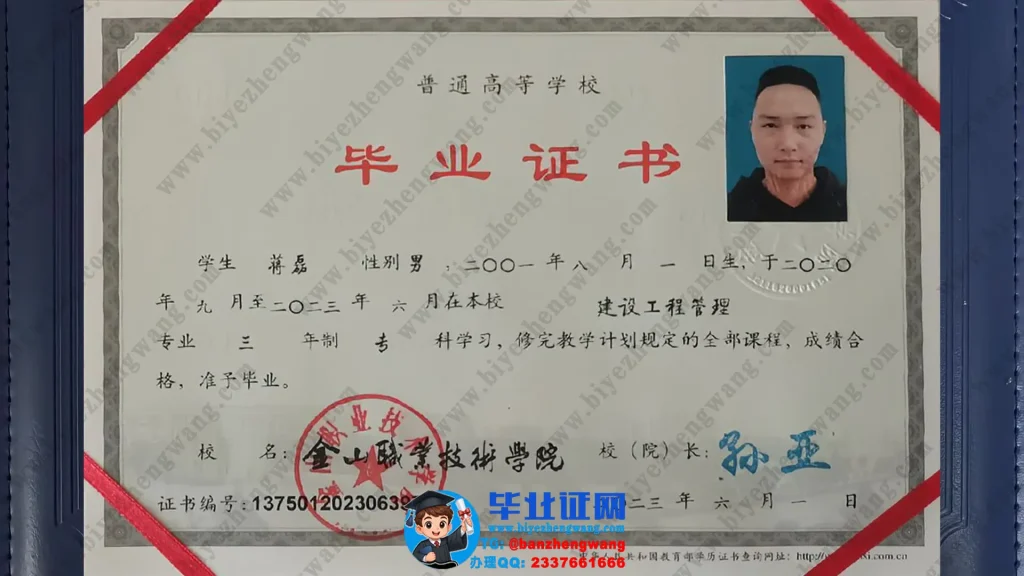 普通高等学校
毕业证书
学生 蒋磊 性别 男 ，二〇〇一 年 八 月 一 日生，于二〇二〇
年 九 月至二〇二三 年 六 月在本校 建设工程管理
专业 三 年制 专 科学习，修完教学计划规定的全部课程，成绩合
格，准予毕业。
校 名： 金山職業技術學院 校（院）长：孙亚
证书编号：13750120230639
二三 年 六 月 一 日
毕业证网
www.biyezhengwang.com
@banzhengwang
办理QQ: 2337661666
共和国教育部学历证书查询网址：
www.biyezhengwang.com